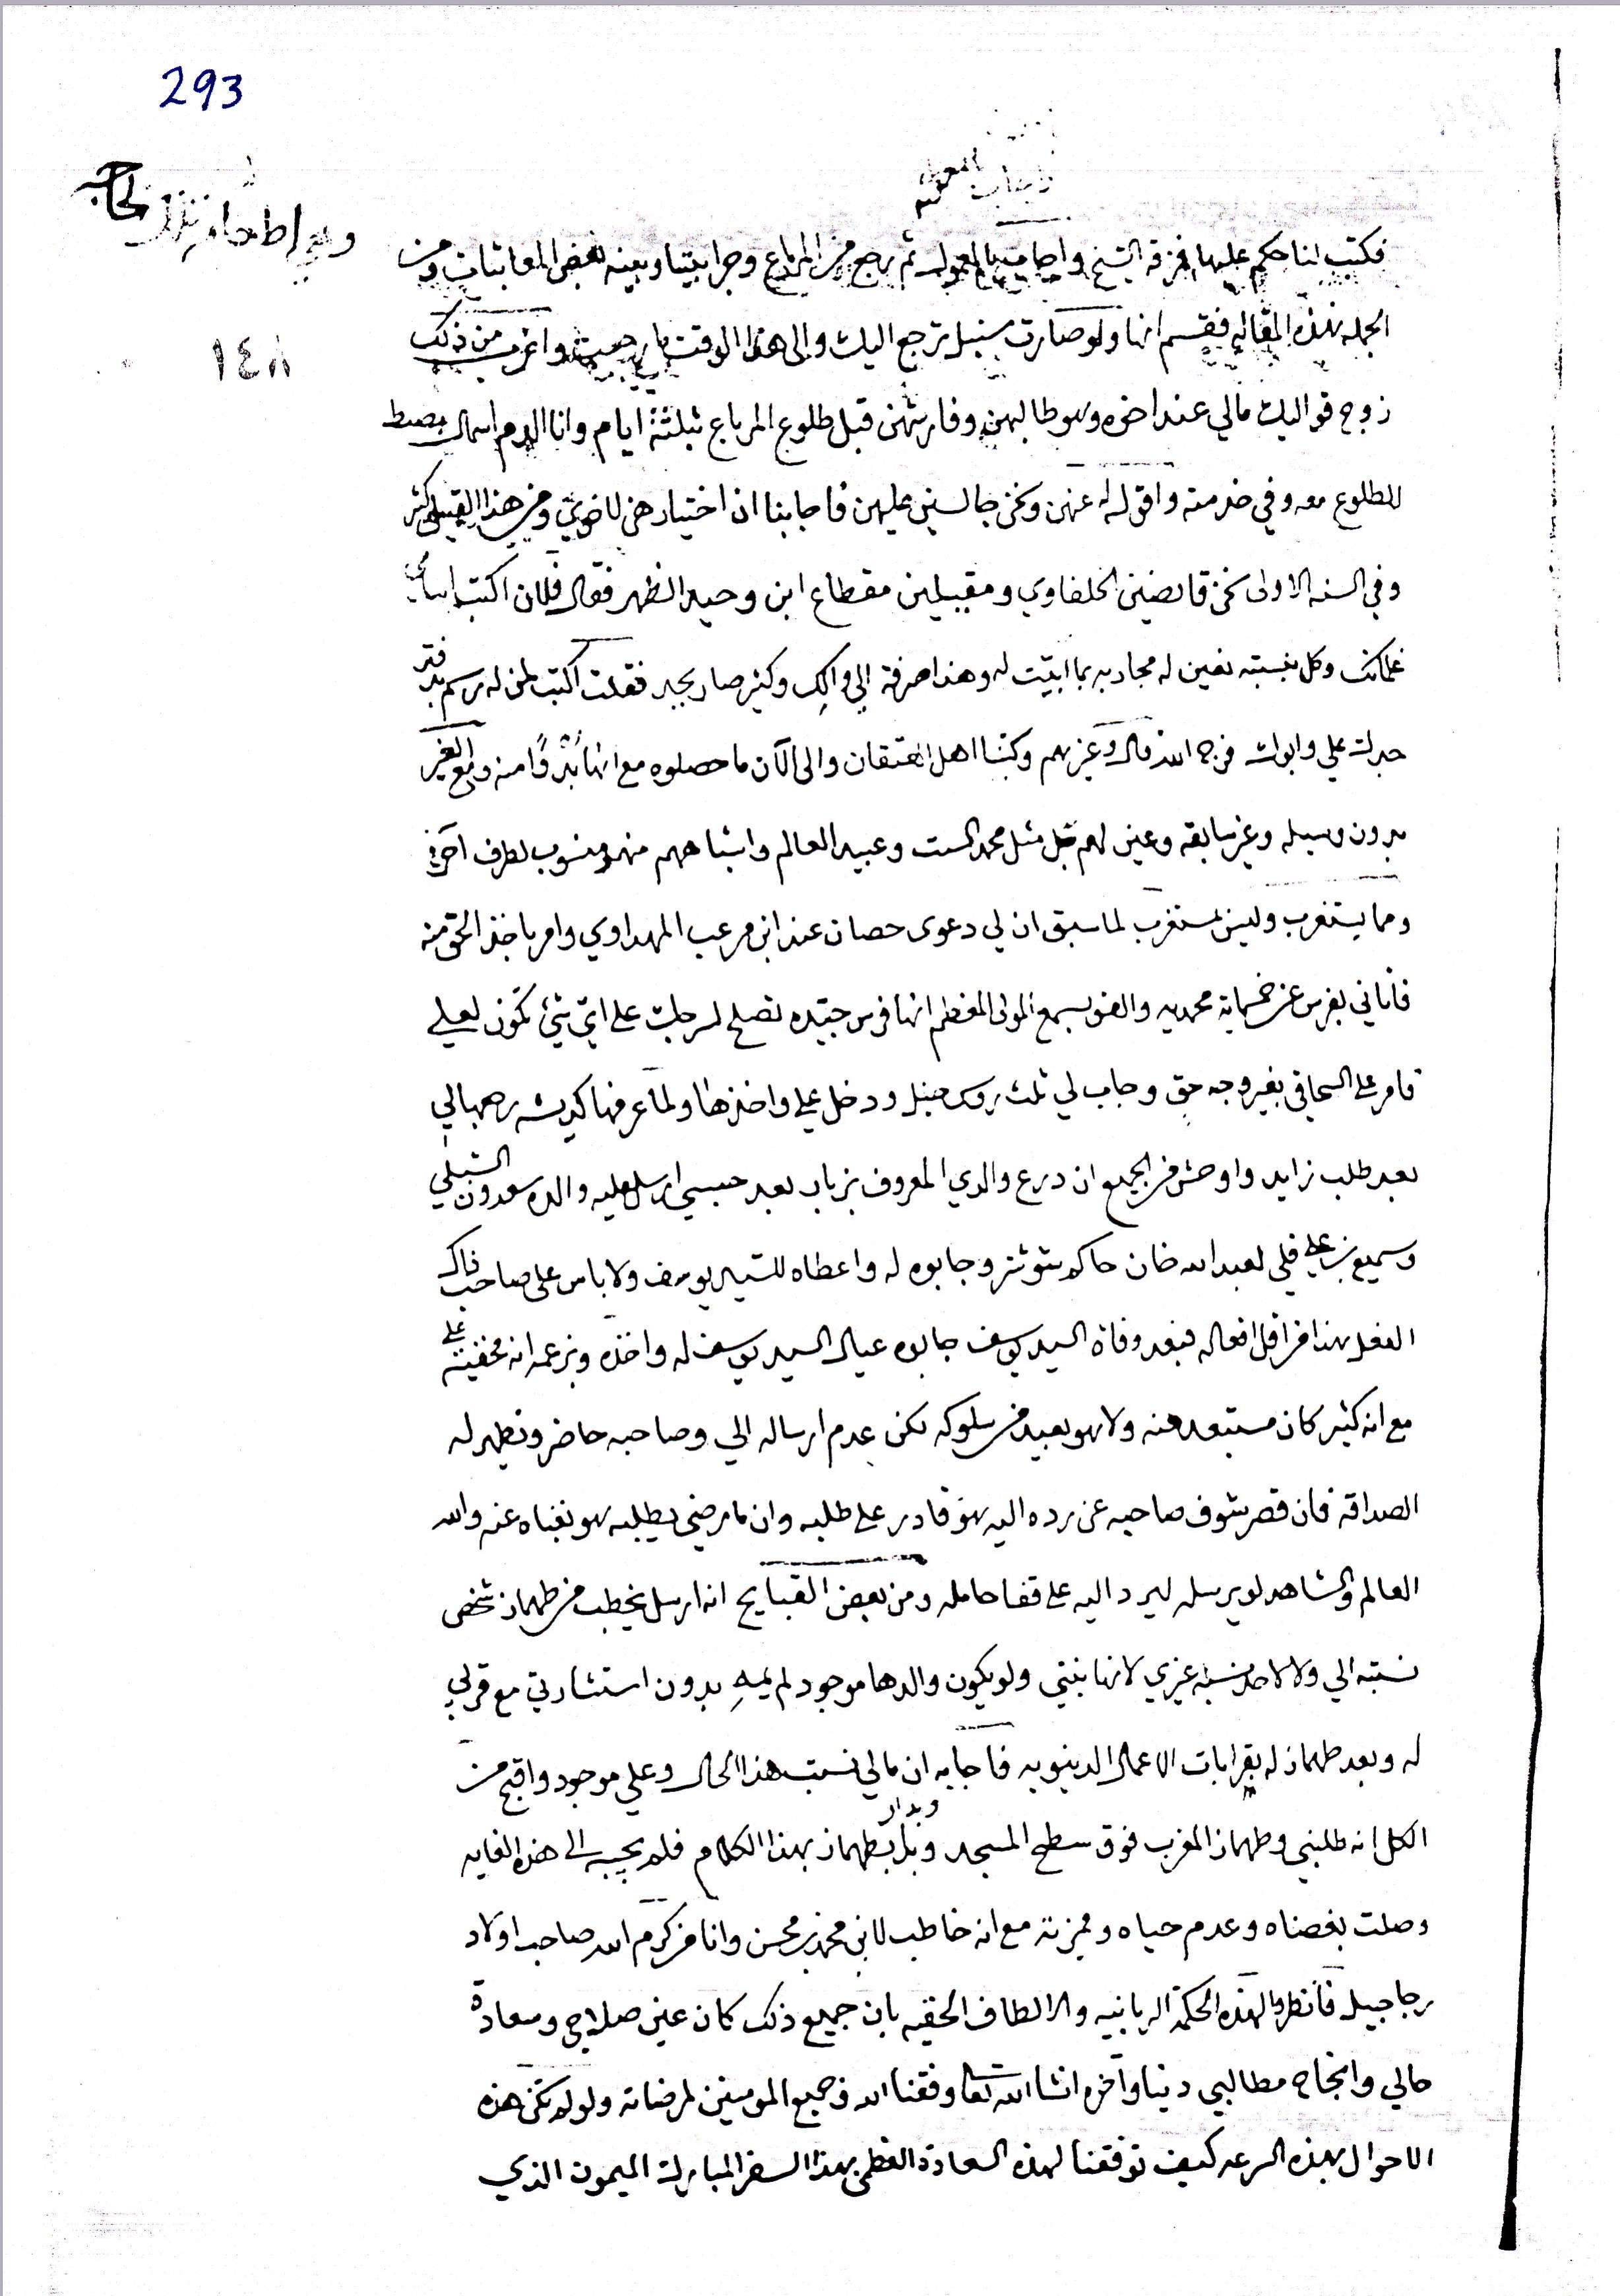 293
١٤٨
فكتب لنا حكم عليها فزقه الشيخ واجابت بالمعول ثم رجع من المرباع وجرا بيننا وبينه بعض المعاتبات ومن
الجمله بهذه المقاله فقسم انها ولو صارت سنبل ترجع اليك والى هذا الوقت ما رجعت واغرب من ذلك
زوج قواليك مالي عند اخوه وهو طالبهن وفارشهن قبل طلوع المرباع بثلثة ايام وانا الدم اسهال
للطلوع معه وفي خدمته واقول له عنهن ونحن جالسين عليهن فاجابنا ان اختيارهن لاخوي ومن هذا القبيل كثير
وفي السنه الاولى نحن قابضين الخلفاوي ومقبلين مقطاع ابن وحيد الظهر فقال فلان اكتب اسامي
غلمانك وكل بنسبته نعين له مجاريه بما ابتيت له وهذا صرفة الي والك وكثير صار يجبر فقلت اكتب لمن له رسم بدفتر
جدك علي وابوك فرج الله قال وغيرهم وكتبنا اهل الحقان والى الآن ما حصلوه مع انها بدوًا منه ومع الغير
بدون وسيله وغير سابقه وعين لهم قبل مثل محمد الست وعبيد العالم واشباههم منهم منسوب لطرف آخر
ومما يستغرب وليس بمستغرب لما سبق ان لي دعوى حصان عند ابن مرعب المهداوي وامر باخذ الحق منه
فاتاني بفرس عن خمسماية محمديه والقى بسمع المولى المعظم انها فرس جيّده تصلح لسرجك على ايّ شئ تكون لعلي
فامر على السحاقي بغير وجه حق وجاب لي ثلث روس خيل ودخل علي واخذها ولما عرفها كديشه رجعها لي
بعد طلب زايد واوحش من الجميع ان درع والدي المعروف بزباب بعد حبسي ارسل عليه والده سعدون الشبلي
وسميع بن علي قلي لعبد الله خان حاكم شوشتر وجابوه له واعطاه للسيد يوسف ولا باس على صاحب ذاك
الفعل بهذا من اقل افعاله فبعد وفاة السيد يوسف جابوه عيال السيد يوسف له واخذه وبزعمه انه مخفيته علي
مع انه كثير كان مستبعد منه ولا هو بعيد من سلوكه لكن عدم ارساله الي وصاحبه حاضر ونظهر له
الصداقة فان قصر شوف صاحبه عن رده اليه هو قادر على طلبه وان ما رضي يطلبه هو بغناه عنه والله
العالم والشاهد لو يرسله ليرد اليه على قفا حامله ومن بعض القبايح انه ارسل يخطب من طهماز شخص
نسبته الي ولا لاحد نسبة غيري لانها بنتي ولو يكون والدها موجود لم يمهِ بدون استشارتي مع قربي
له وبعد طهماز له بقرابات الاعمال الدينويه فاجابه ان مالي نسب هذا الحال وعلي موجود واقبح من
الكل انه طلبني وطهماز المغرب فوق سطح المسجد وبدا بطهماز بهذا الكلام فلم يجيبه الى هذه الغايه
وصلت بغضناه وعدم حياه ومميزته مع انه خاطب لابني محمد بن محسن وانا من كرم الله صاحب اولاد
رجاجيل فانظر لهذه الحكمة الربانيه والالطاف الخفيه بان جميع ذلك كان عين صلاحي وسعادة
حالي وانجاح مطالبي دنيا وآخره انشا الله تعا وفقنا الله وجميع المومنين لمرضاته ولو لم تكن هذه
الاحوال بهذه السرعه كيف توفقنا لهذه السعادة العظمى بهذا السفر المبارك الميمون الذي